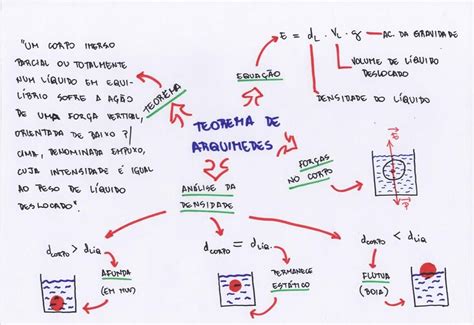 "UM CORPO IMERSO
PARCIAL OU TOTALMENTE
NUM LÍQUIDO EM EQUI-
LÍBRIO SOFRE A AÇÃO
DE UMA FORÇA VERTICAL,
ORIENTADA DE BAIXO P/
CIMA, DENOMINADA EMPUXO,
CUJA INTENSIDADE É IGUAL
AO PESO DE LÍQUIDO
DESLOCADO".
TEOREMA
EQUAÇÃO
E = dL . VL . g
AC. DA GRAVIDADE
VOLUME DE LÍQUIDO
DESLOCADO
DENSIDADE DO LÍQUIDO
TEOREMA DE
ARQUIMEDES
FORÇAS
NO CORPO
E
P
ANÁLISE DA
DENSIDADE
dCORPO > dLIQ.
AFUNDA
(EM MUV)
dCORPO = dLIQ.
PERMANECE
ESTÁTICO
dCORPO < dLIQ
FLUTUA
(BOIA)